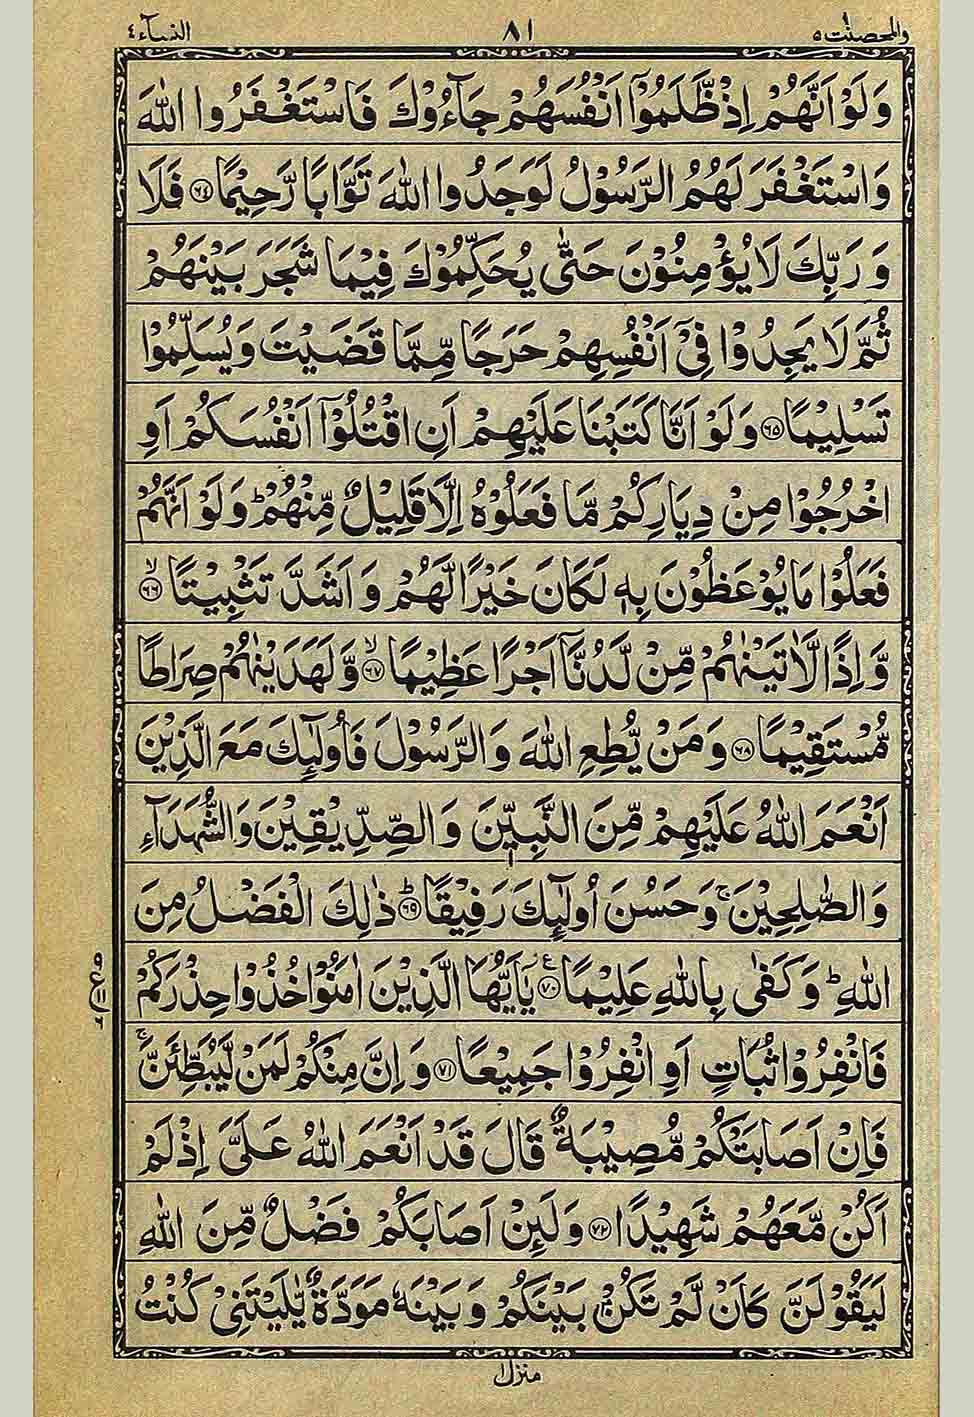 والمحصنت ٥ ٨١ النسآء ٤
وَلَوْ اَنَّهُمْ اِذْ ظَّلَمُوْۤا اَنْفُسَهُمْ جَآءُوْكَ فَاسْتَغْفَرُوا اللّٰهَ
وَاسْتَغْفَرَ لَهُمُ الرَّسُوْلُ لَوَجَدُوا اللّٰهَ تَوَّابًا رَّحِيْمًا ۝٦٤ فَلَا
وَرَبِّكَ لَا يُؤْمِنُوْنَ حَتّٰى يُحَكِّمُوْكَ فِيْمَا شَجَرَ بَيْنَهُمْ
ثُمَّ لَا يَجِدُوْا فِيْۤ اَنْفُسِهِمْ حَرَجًا مِّمَّا قَضَيْتَ وَيُسَلِّمُوْا
تَسْلِيْمًا ۝٦٥ وَلَوْ اَنَّا كَتَبْنَا عَلَيْهِمْ اَنِ اقْتُلُوْۤا اَنْفُسَكُمْ اَوِ
اخْرُجُوْا مِنْ دِيَارِكُمْ مَّا فَعَلُوْهُ اِلَّا قَلِيْلٌ مِّنْهُمْ ؕ وَلَوْ اَنَّهُمْ
فَعَلُوْا مَا يُوْعَظُوْنَ بِهٖ لَكَانَ خَيْرًا لَّهُمْ وَاَشَدَّ تَثْبِيْتًا ۝٦٦ ۙ
وَّاِذًا لَّاٰتَيْنٰهُمْ مِّنْ لَّدُنَّاۤ اَجْرًا عَظِيْمًا ۝٦٧ ۙ وَّلَهَدَيْنٰهُمْ صِرَاطًا
مُّسْتَقِيْمًا ۝٦٨ وَمَنْ يُّطِعِ اللّٰهَ وَالرَّسُوْلَ فَاُولٰٓئِكَ مَعَ الَّذِيْنَ
اَنْعَمَ اللّٰهُ عَلَيْهِمْ مِّنَ النَّبِيّٖنَ وَالصِّدِّيْقِيْنَ وَالشُّهَدَآءِ
وَالصّٰلِحِيْنَ ۚ وَحَسُنَ اُولٰٓئِكَ رَفِيْقًا ۝٦٩ ؕ ذٰلِكَ الْفَضْلُ مِنَ
اللّٰهِ ؕ وَكَفٰى بِاللّٰهِ عَلِيْمًا ۝٧٠ ع يٰۤاَيُّهَا الَّذِيْنَ اٰمَنُوْا خُذُوْا حِذْرَكُمْ
فَانْفِرُوْا ثُبَاتٍ اَوِ انْفِرُوْا جَمِيْعًا ۝٧١ وَاِنَّ مِنْكُمْ لَمَنْ لَّيُبَطِّئَنَّ ۚ
فَاِنْ اَصَابَتْكُمْ مُّصِيْبَةٌ قَالَ قَدْ اَنْعَمَ اللّٰهُ عَلَيَّ اِذْ لَمْ
اَكُنْ مَّعَهُمْ شَهِيْدًا ۝٧٢ وَلَئِنْ اَصَابَكُمْ فَضْلٌ مِّنَ اللّٰهِ
لَيَقُوْلَنَّ كَاَنْ لَّمْ تَكُنْۢ بَيْنَكُمْ وَبَيْنَهٗ مَوَدَّةٌ يّٰلَيْتَنِيْ كُنْتُ
منزل ١